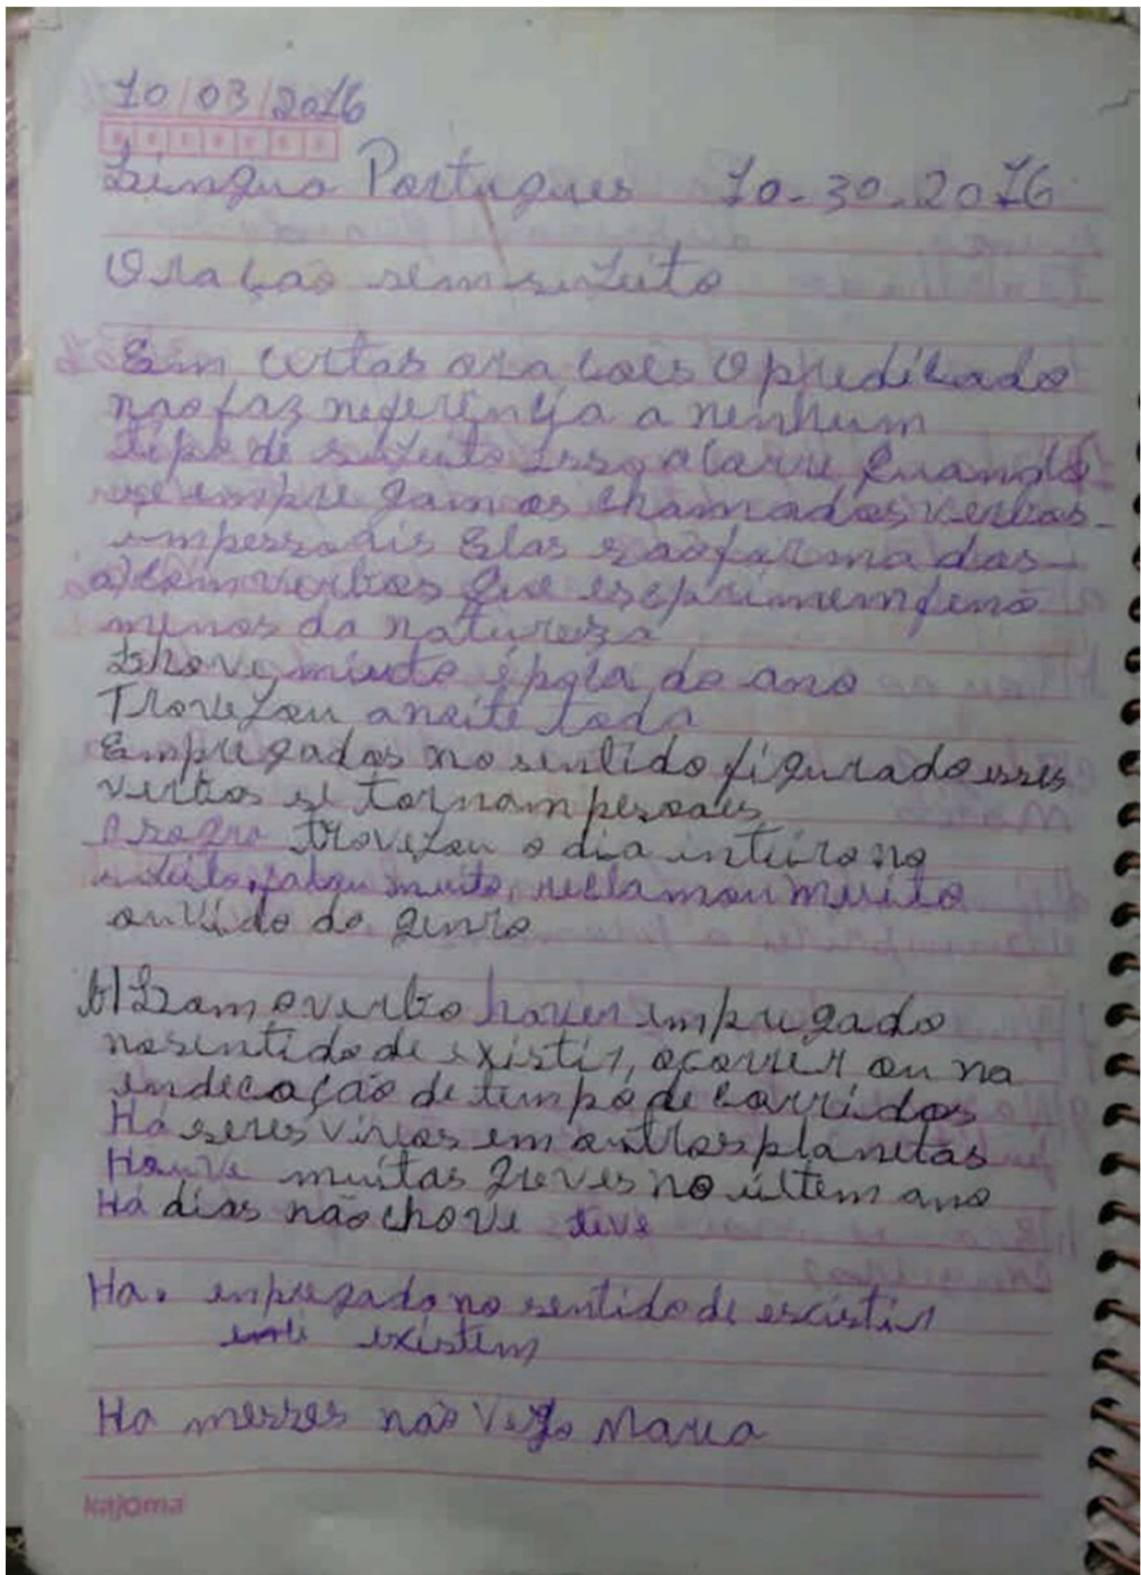 10/03/2016
Lingua Portugues 10-30-2016
Oração sem suleito
Em certas orações o predicado
não faz referência a nenhum
tipo de suleito isso ocorre quando
se empregamos chamados verbos
impessoais Elas são formadas
a) com verbos que esxprimem fenô
menos da natureza
Chove muito época do ano
Trovelou a noite toda
Empregados no sentido figurado esses
verbos se tornam pesoaes
O sogro trovelou o dia inteiro no
muito, reclamou muito
ouvido do genro
b) Com o verbo haver empregado
no sentido de existir, ocorrer ou na
indecação de tempo decorridos
Há seres vivos em outros planetas
Houve muitas greves no últem ano
Há dias não chove teve
Ha. enpregado no sentido de escistir
existem
Ha messes não vejo Maria
kajoma